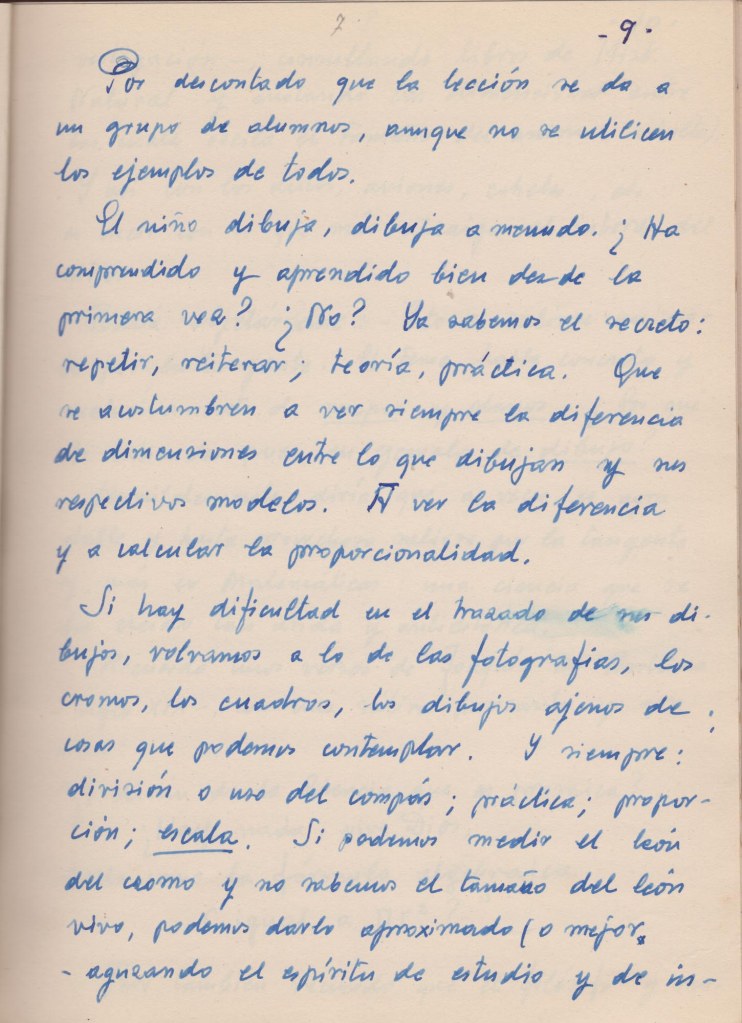 7
- 9 -
Por descontado que la lección se da a
un grupo de alumnos, aunque no se utilicen
los ejemplos de todos.
El niño dibuja, dibuja a menudo. ¿Ha
comprendido y aprendido bien desde la
primera vez? ¿No? Ya sabemos el secreto:
repetir, reiterar, teoría, práctica. Que
se acostumbren a ver siempre la diferencia
de dimensiones entre lo que dibujan y sus
respectivos modelos. A ver la diferencia
y a calcular la proporcionalidad.
Si hay dificultad en el trazado de sus di-
bujos, volvamos a lo de las fotografías, los
cromos, los cuadros, los dibujos ajenos de
cosas que podemos contemplar. Y siempre:
división o uso del compás; práctica; propor-
ción; escala. Si podemos medir el león
del cromo y no sabemos el tamaño del león
vivo, podemos darlo aproximado (o mejor,
- aguzando el espíritu de estudio y de in-